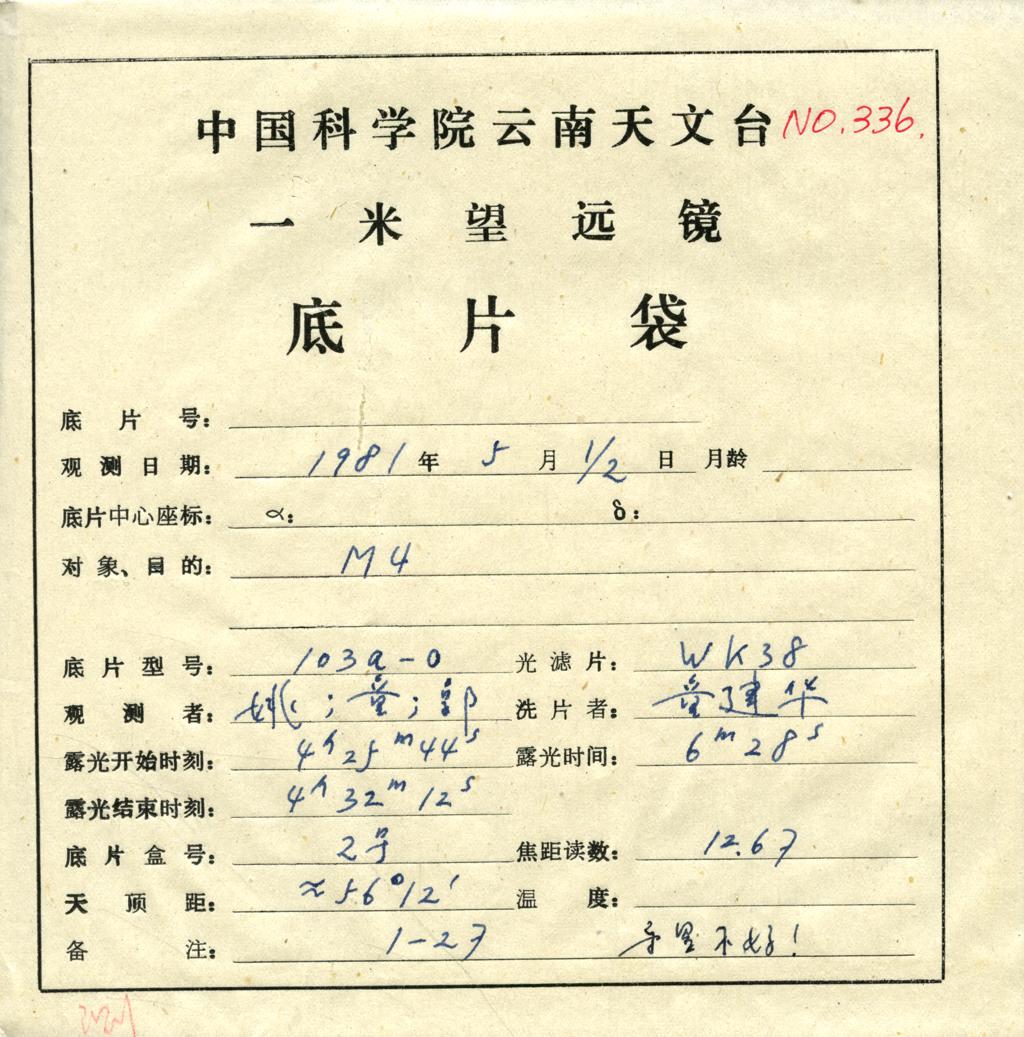 中国科学院云南天文台 NO.336.
一米望远镜
底片袋
底片号:
观测日期: 1981年 5月 1/2日 月龄
底片中心座标: α: δ:
对象、目的: M4
底片型号: 103a-0 光滤片: WK38
观测者: 姚;童;郭 洗片者: 童建华
露光开始时刻: 4h25m44s 露光时间: 6m28s
露光结束时刻: 4h32m12s
底片盒号: 2号 焦距读数: 12.67
天顶距: ≈56°12′ 温度:
备注: 1-27 不好!